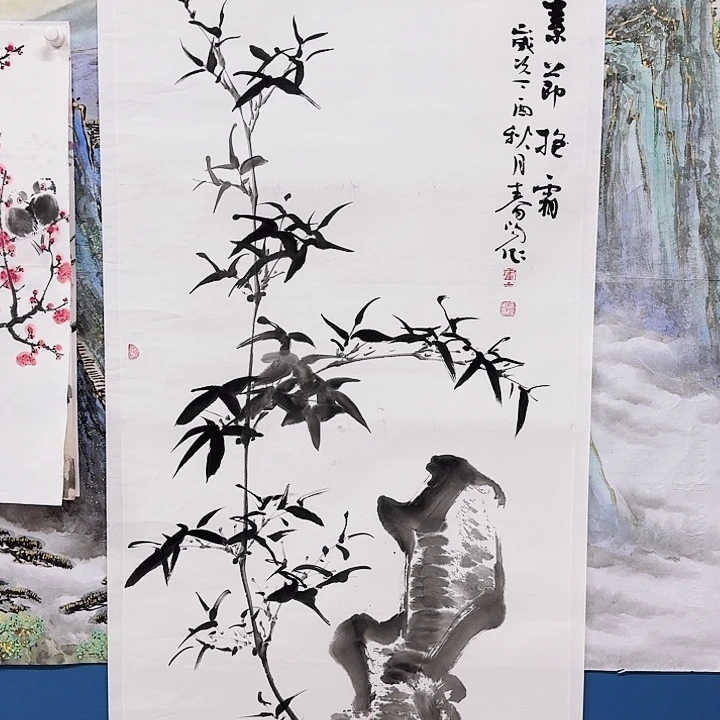 素節抱霜
歲次丁酉秋月春阳作